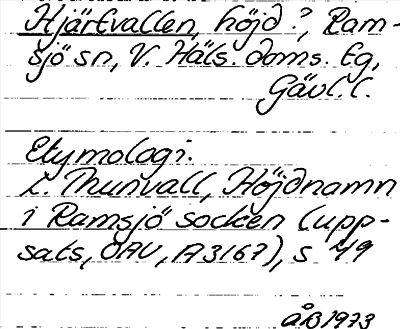 Hjärtvallen, höjd?, Ram-
sjö sn, V. Häls. doms. tg,
Gävl. l.
Etymologi.
L. Thunvall, Höjdnamn
i Ramsjö socken (upp-
sats, OAU, A3167), s 49
ÅB 1973